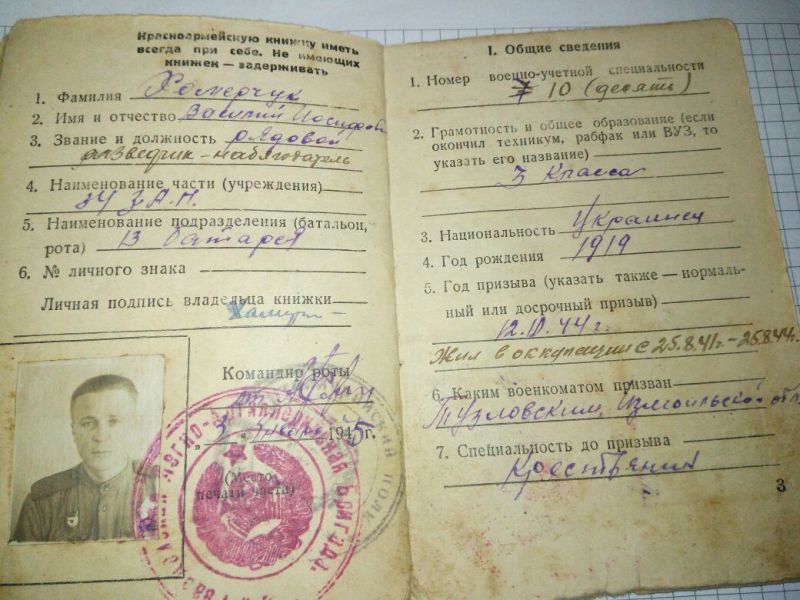 Красноармейскую книжку иметь
всегда при себе. Не имеющих
книжек — задерживать
1. Фамилия
2. Имя и отчество Василий
3. Звание и должность рядовой
разведчик-наблюдатель
4. Наименование части (учреждения)
5. Наименование подразделения (батальон,
рота) 13 батарея
6. № личного знака
Личная подпись владельца книжки
Командир роты
„3" января 1945 г.
(Место
печати части)
I. Общие сведения
1. Номер военно-учетной специальности
10 (десять)
2. Грамотность и общее образование (если
окончил техникум, рабфак или ВУЗ, то
указать его название)
3 класса
3. Национальность Украинец
4. Год рождения 1919
5. Год призыва (указать также — нормаль-
ный или досрочный призыв)
44 г.
Жил в оккупации с 25.8.41г. - 25.8.44г.
6. Каким военкоматом призван
Тузловским, Измаильской обл
7. Специальность до призыва
Крестьянин
3